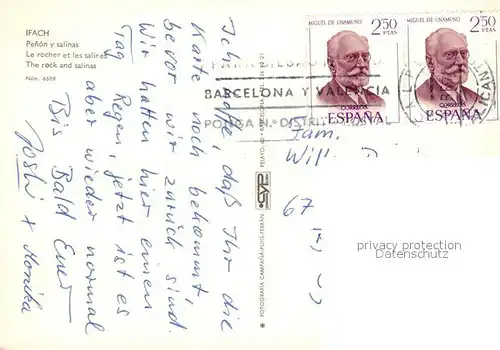 IFACH
Peñón y salinas
Le rocher et les salines
The rock and salinas
Núm. 6669
Ich hoffe, daß Ihr die
Karte noch bekommt
bevor wir zurück sind.
Wir hatten hier einen
Tag Regen, jetzt ist es
aber wieder normal
Bis Bald Euer
+ Monika
FOTOGRAFÍA CAMPAÑÁ-PUIG-FERRÁN
PELAYO, 60 - BARCELONA
MIGUEL DE UNAMUNO
2,50
PTAS
CORREOS
ESPAÑA
MIGUEL DE UNAMUNO
2,50
PTAS
CORREOS
ESPAÑA
BARCELONA Y VALENCIA
PONGA N.º DISTRITO POSTAL
Fam.
Will
67
privacy protection
Datenschutz